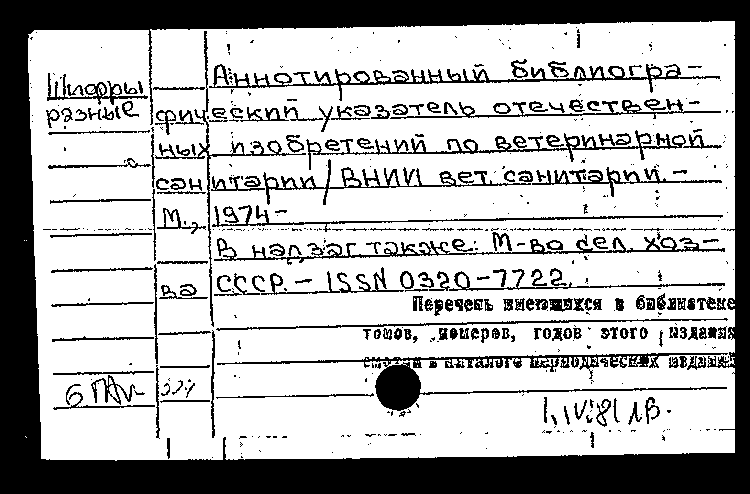 Шифры разные
Аннотированный библиогра-
фический указатель отечествен-
ных изобретений по ветеринарной
санитарии / ВНИИ вет. санитарии. –
М., 1974-
В надзаг. также: М-во сел. хоз-
ва СССР. – ISSN 0320-7722.
Перечень имеющихся в библиотеке
томов, номеров, годов этого издания
смотри в каталоге периодических изданий
1.IV.81